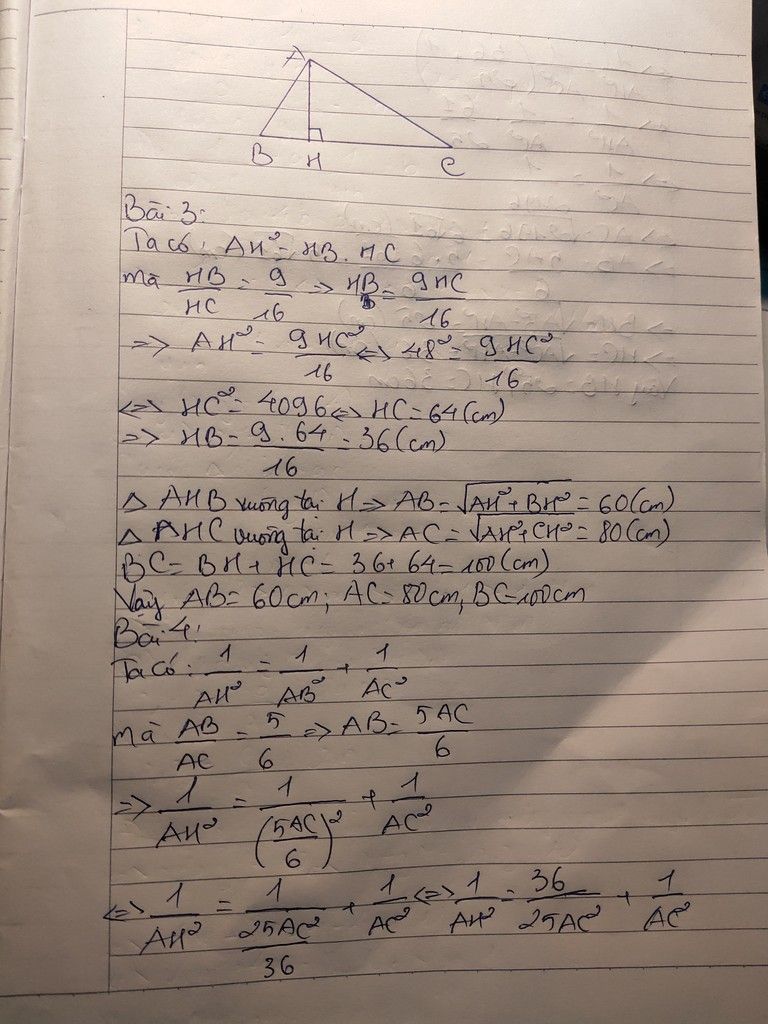 A
B H C
Bài 3:
Ta có: AH² = HB. HC
mà HB/HC = 9/16 => HB = 9HC/16
=> AH² = 9HC²/16 <=> 48² = 9HC²/16
<=> HC² = 4096 <=> HC = 64 (cm)
=> HB = 9.64/16 = 36 (cm)
△ AHB vuông tại H => AB = √(AH² + BH²) = 60 (cm)
△ AHC vuông tại H => AC = √(AH² + CH²) = 80 (cm)
BC = BH + HC = 36 + 64 = 100 (cm)
Vậy AB = 60cm; AC = 80cm, BC = 100cm
Bài 4:
Ta có: 1/AH² = 1/AB² + 1/AC²
mà AB/AC = 5/6 => AB = 5AC/6
=> 1/AH² = 1/(5AC/6)² + 1/AC²
<=> 1/AH² = 1/(25AC²/36) + 1/AC² <=> 1/AH² = 36/25AC² + 1/AC²